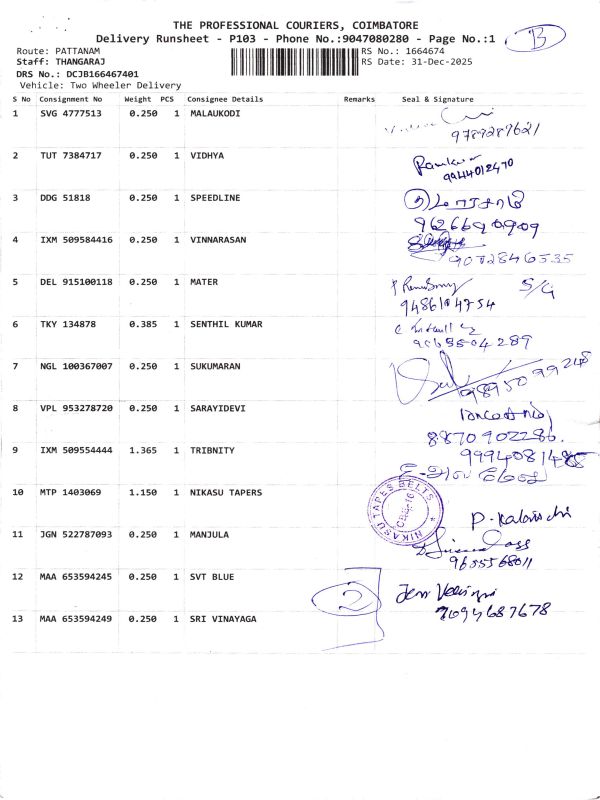 THE PROFESSIONAL COURIERS, COIMBATORE
Delivery Runsheet - P103 - Phone No.:9047080280 - Page No.:1
B
Route: PATTANAM
RS No.: 1664674
Staff: THANGARAJ
RS Date: 31-Dec-2025
DRS No.: DCJB166467401
Vehicle: Two Wheeler Delivery
S No Consignment No Weight PCS Consignee Details Remarks Seal & Signature
1 SVG 4777513 0.250 1 MALAUKODI
9787287621
2 TUT 7384717 0.250 1 VIDHYA
9944012470
3 DDG 51818 0.250 1 SPEEDLINE
9626690909
4 IXM 509584416 0.250 1 VINNARASAN
9072846535
5 DEL 915100118 0.250 1 MATER
S/G
9486104754
6 TKY 134878 0.385 1 SENTHIL KUMAR
7 NGL 100367007 0.250 1 SUKUMARAN
8 VPL 953278720 0.250 1 SARAYIDEVI
8870902286.
9 IXM 509554444 1.365 1 TRIBNITY
10 MTP 1403069 1.150 1 NIKASU TAPERS
NIKASU TAPES BELTS
11 JGN 522787093 0.250 1 MANJULA
9655568011
12 MAA 653594245 0.250 1 SVT BLUE
2
7094687678
13 MAA 653594249 0.250 1 SRI VINAYAGA